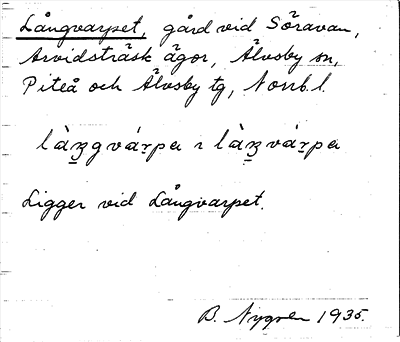 Långvarpet, gård vid Söravan,
Arvidsträsk ägor, Älvsby sn,
Piteå och Älvsby tg, Norrb. l.
làŋgvár̲pa ~ làŋvár̲pa
Ligger vid Långvarpet.
B. Nygren 1935.